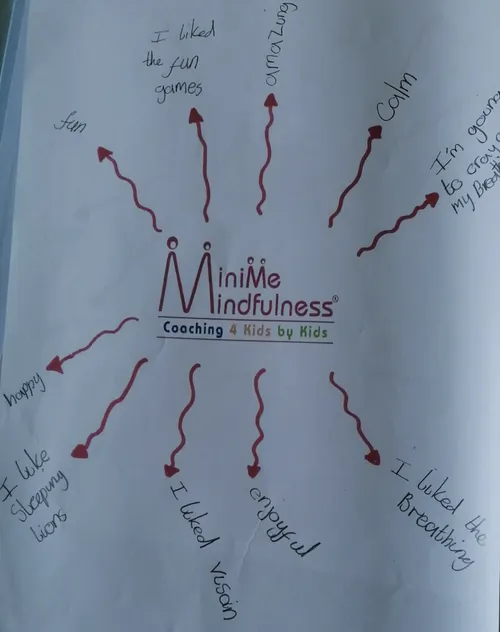 fun
I liked
the fun
games
amazung
Calm
I'm goung
to cray
my Breath
MiniMe
Mindfulness®
Coaching 4 Kids by Kids
happy
I like
Sleeping
lions
I liked vusain
enjoyful
I liked the
Breathing